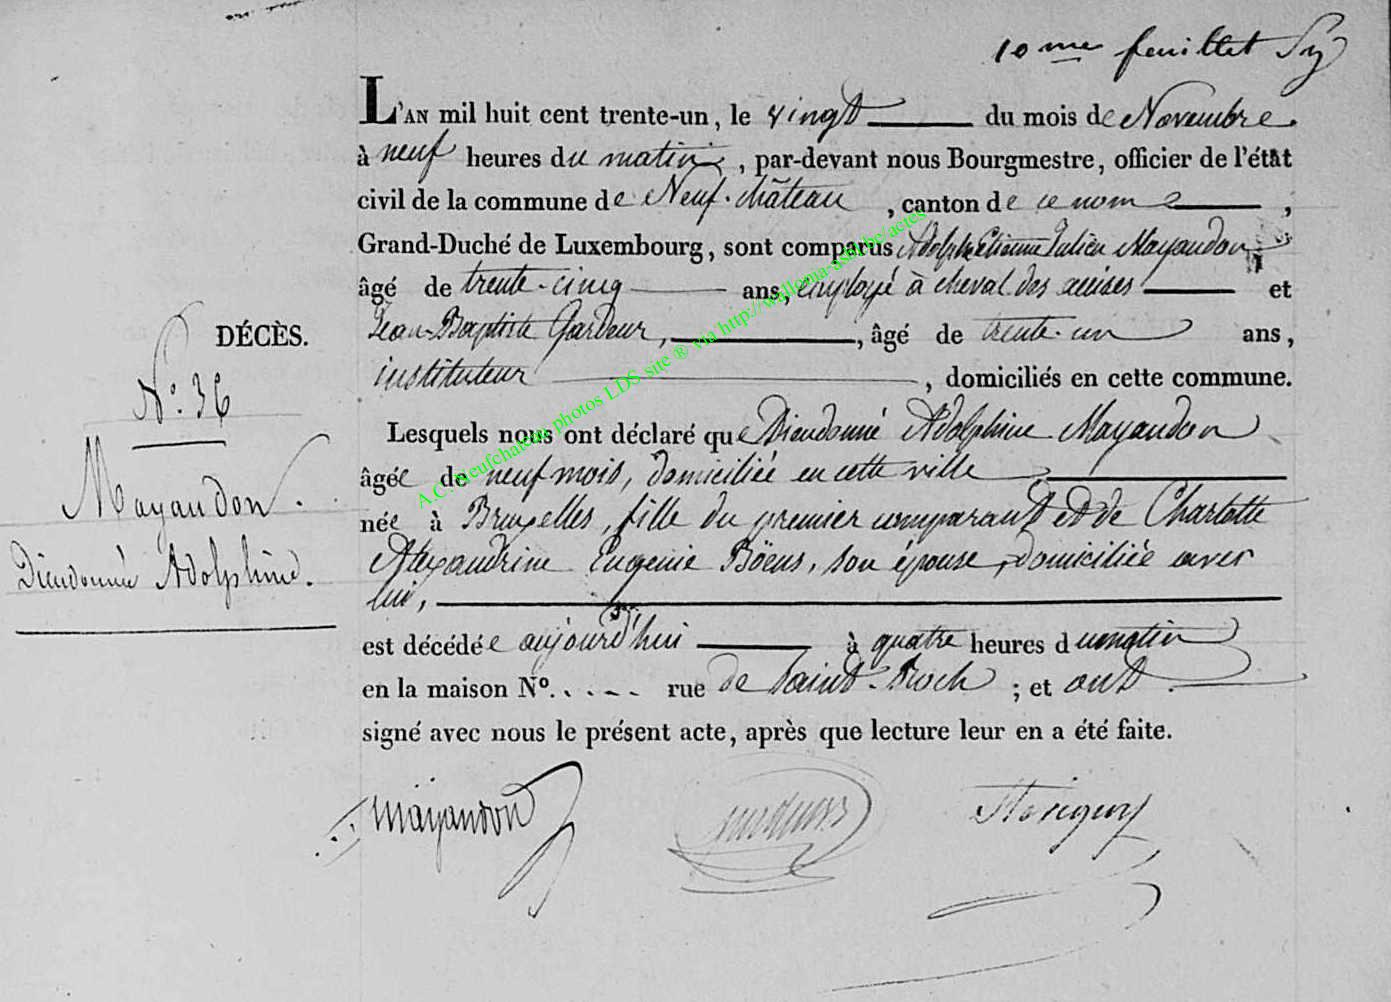 10me feuillet
L'AN mil huit cent trente-un, le vingt du mois de Novembre
à neuf heures du matin, par-devant nous Bourgmestre, officier de l'état
civil de la commune de Neuf-château, canton de ce nom,
Grand-Duché de Luxembourg, sont comparus Adolphe Etienne Julien Mayaudon
âgé de trente-cinq ans, employé à cheval des accises et
Jean-Baptiste Gardeur, âgé de trente-un ans,
instituteur, domiciliés en cette commune.
DÉCÈS.
N°. 36
Mayaudon.
Dieudonnée Adolphine.
Lesquels nous ont déclaré que Dieudonné Adolphine Mayaudon
âgée de neuf mois, domiciliée en cette ville
née à Bruxelles, fille du premier comparant et de Charlotte
Alexandrine Eugenie Böens, son épouse, domiciliée avec
lui,
est décédée aujourd'hui à quatre heures du matin
en la maison N°. .... rue de Saint-Roch; et ont
signé avec nous le présent acte, après que lecture leur en a été faite.
Mayaudon
A.C. Neufchateau photos LDS site ® via http://wallonia-asbl.be/actes